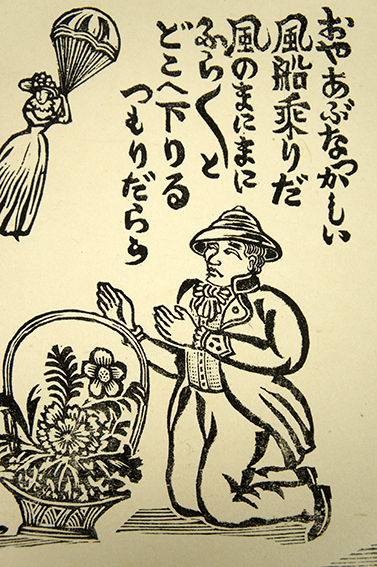 おやあぶなつかしい
風船乗りだ
風のまにまに
ふら〱と
どこへ下りる
つもりだらう